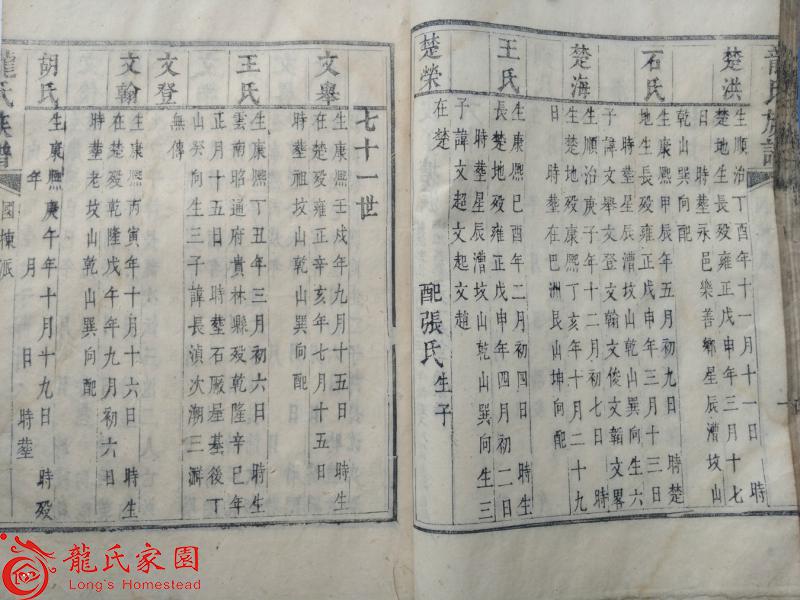 龍氏族譜
楚洪
生順治丁酉年十一月十一日 時
生長殁雍正戊申年三月十七
日 時塟永邑樂善鄉星辰漕坟山
乾山巽向配
石氏
生康熙甲辰年五月初九日 時楚
地生長殁雍正戊申年三月十三日
時塟星辰漕坟山乾山巽向生六
子諱文舉文登文翰文俊文韜文畧
楚海
生順治庚子年十二月初七日 時
生楚地殁康熙丁亥年十月二十九
日 時塟在巴洲艮山坤向配
王氏
生康熙己酉年二月初四日 時生
長楚地殁雍正戊申年四月初二日
時塟星辰漕坟山乾山巽向生三
子諱文超文起文趙
楚榮
在楚 配張氏 生子
七十一世
文舉
生康熙壬戌年九月十五日 時生
在楚殁雍正辛亥年七月十五日
時塟祖坟山乾山巽向配
王氏
生康熙丁丑年三月初六日 時生
雲南昭通府貴林縣殁乾隆辛巳年
正月十五日 時塟石厫星基後丁
山癸向生三子諱長湞次潮三湃
文登
無傳
文翰
生康熙丙寅年十月十六日 時生
在楚殁乾隆戊午年九月初六日
時塟老坟山乾山巽向配
胡氏
生康熙庚午年十月十九日 時殁
年 月 日 時塟
龍氏族譜
國棟派
龍氏家園
Long's Homestead